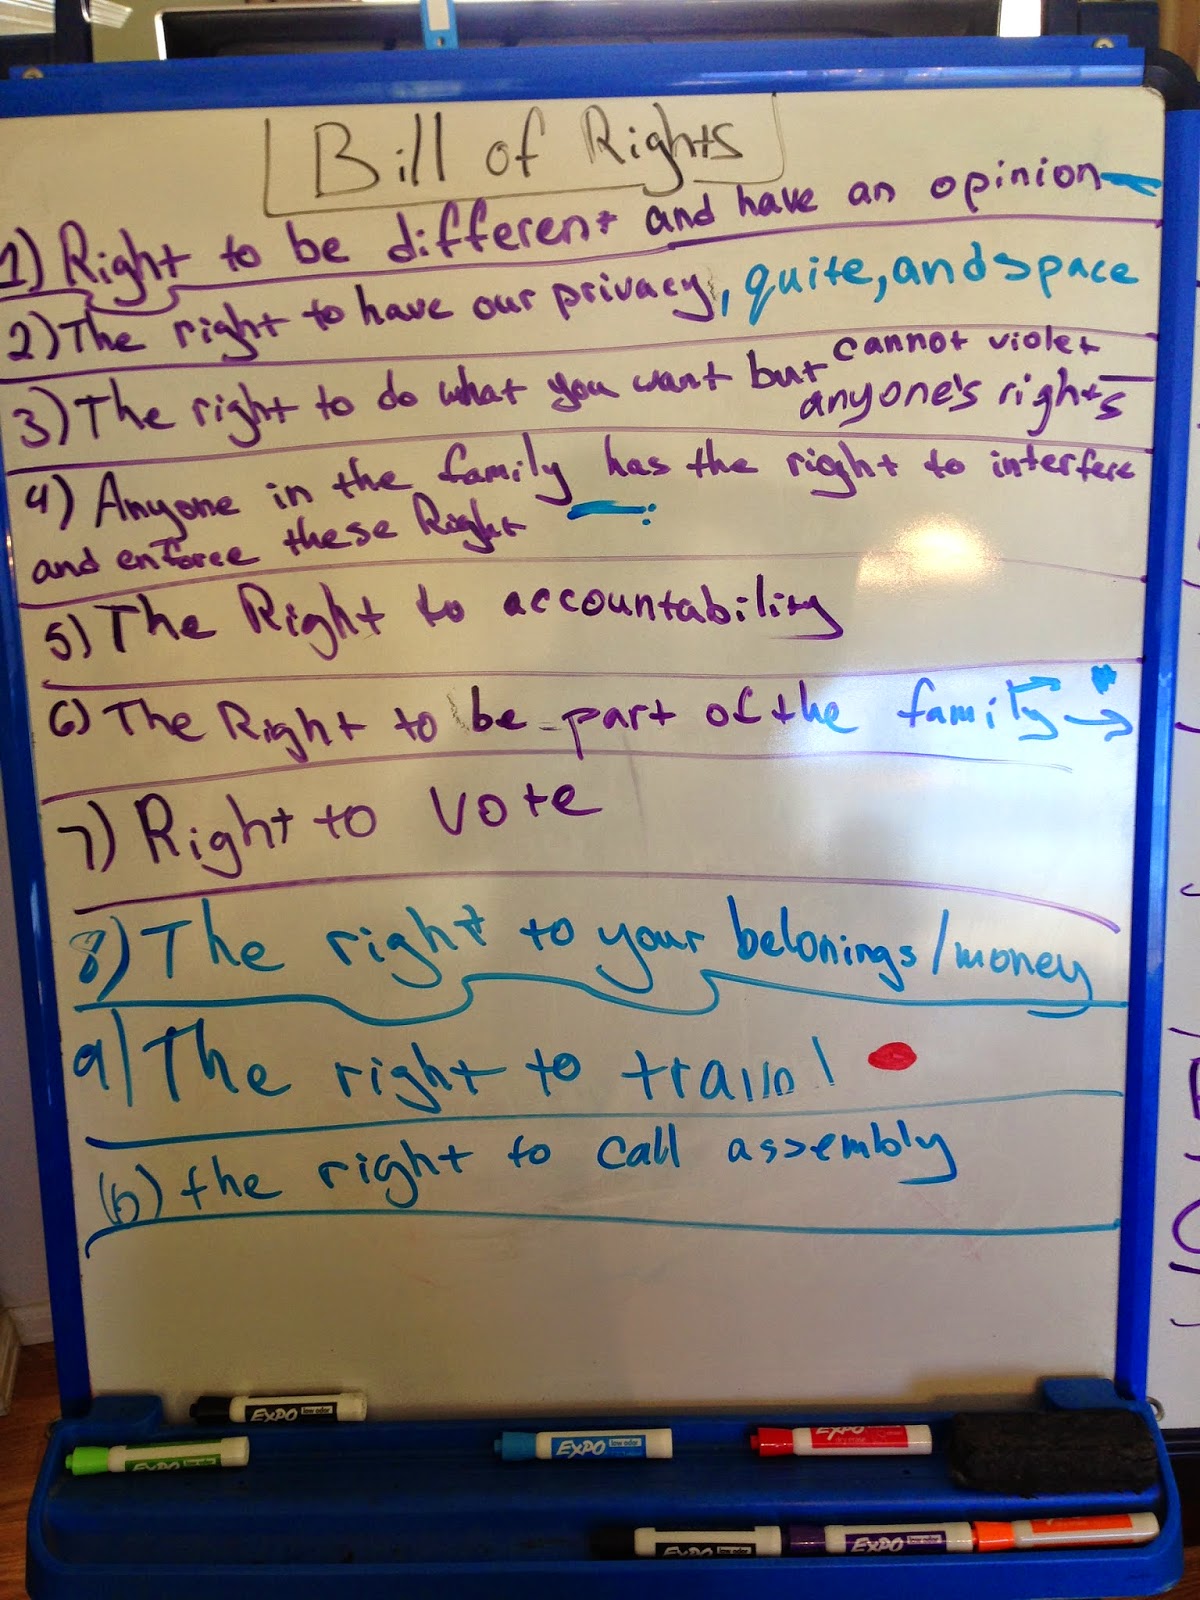 Bill of Rights
1) Right to be different and have an opinion
2) The right to have our privacy, quite, and space
3) The right to do what you want but cannot violet
anyone's rights
4) Anyone in the family has the right to interfere
and enforce these Right
5) The Right to accountability
6) The Right to be part of the family
7) Right to vote
8) The right to your belonings/money
9) The right to train!
10) the right to call assembly
EXPO low odor
EXPO
EXPO low odor
EXPO
EXPO low odor
EXPO low odor